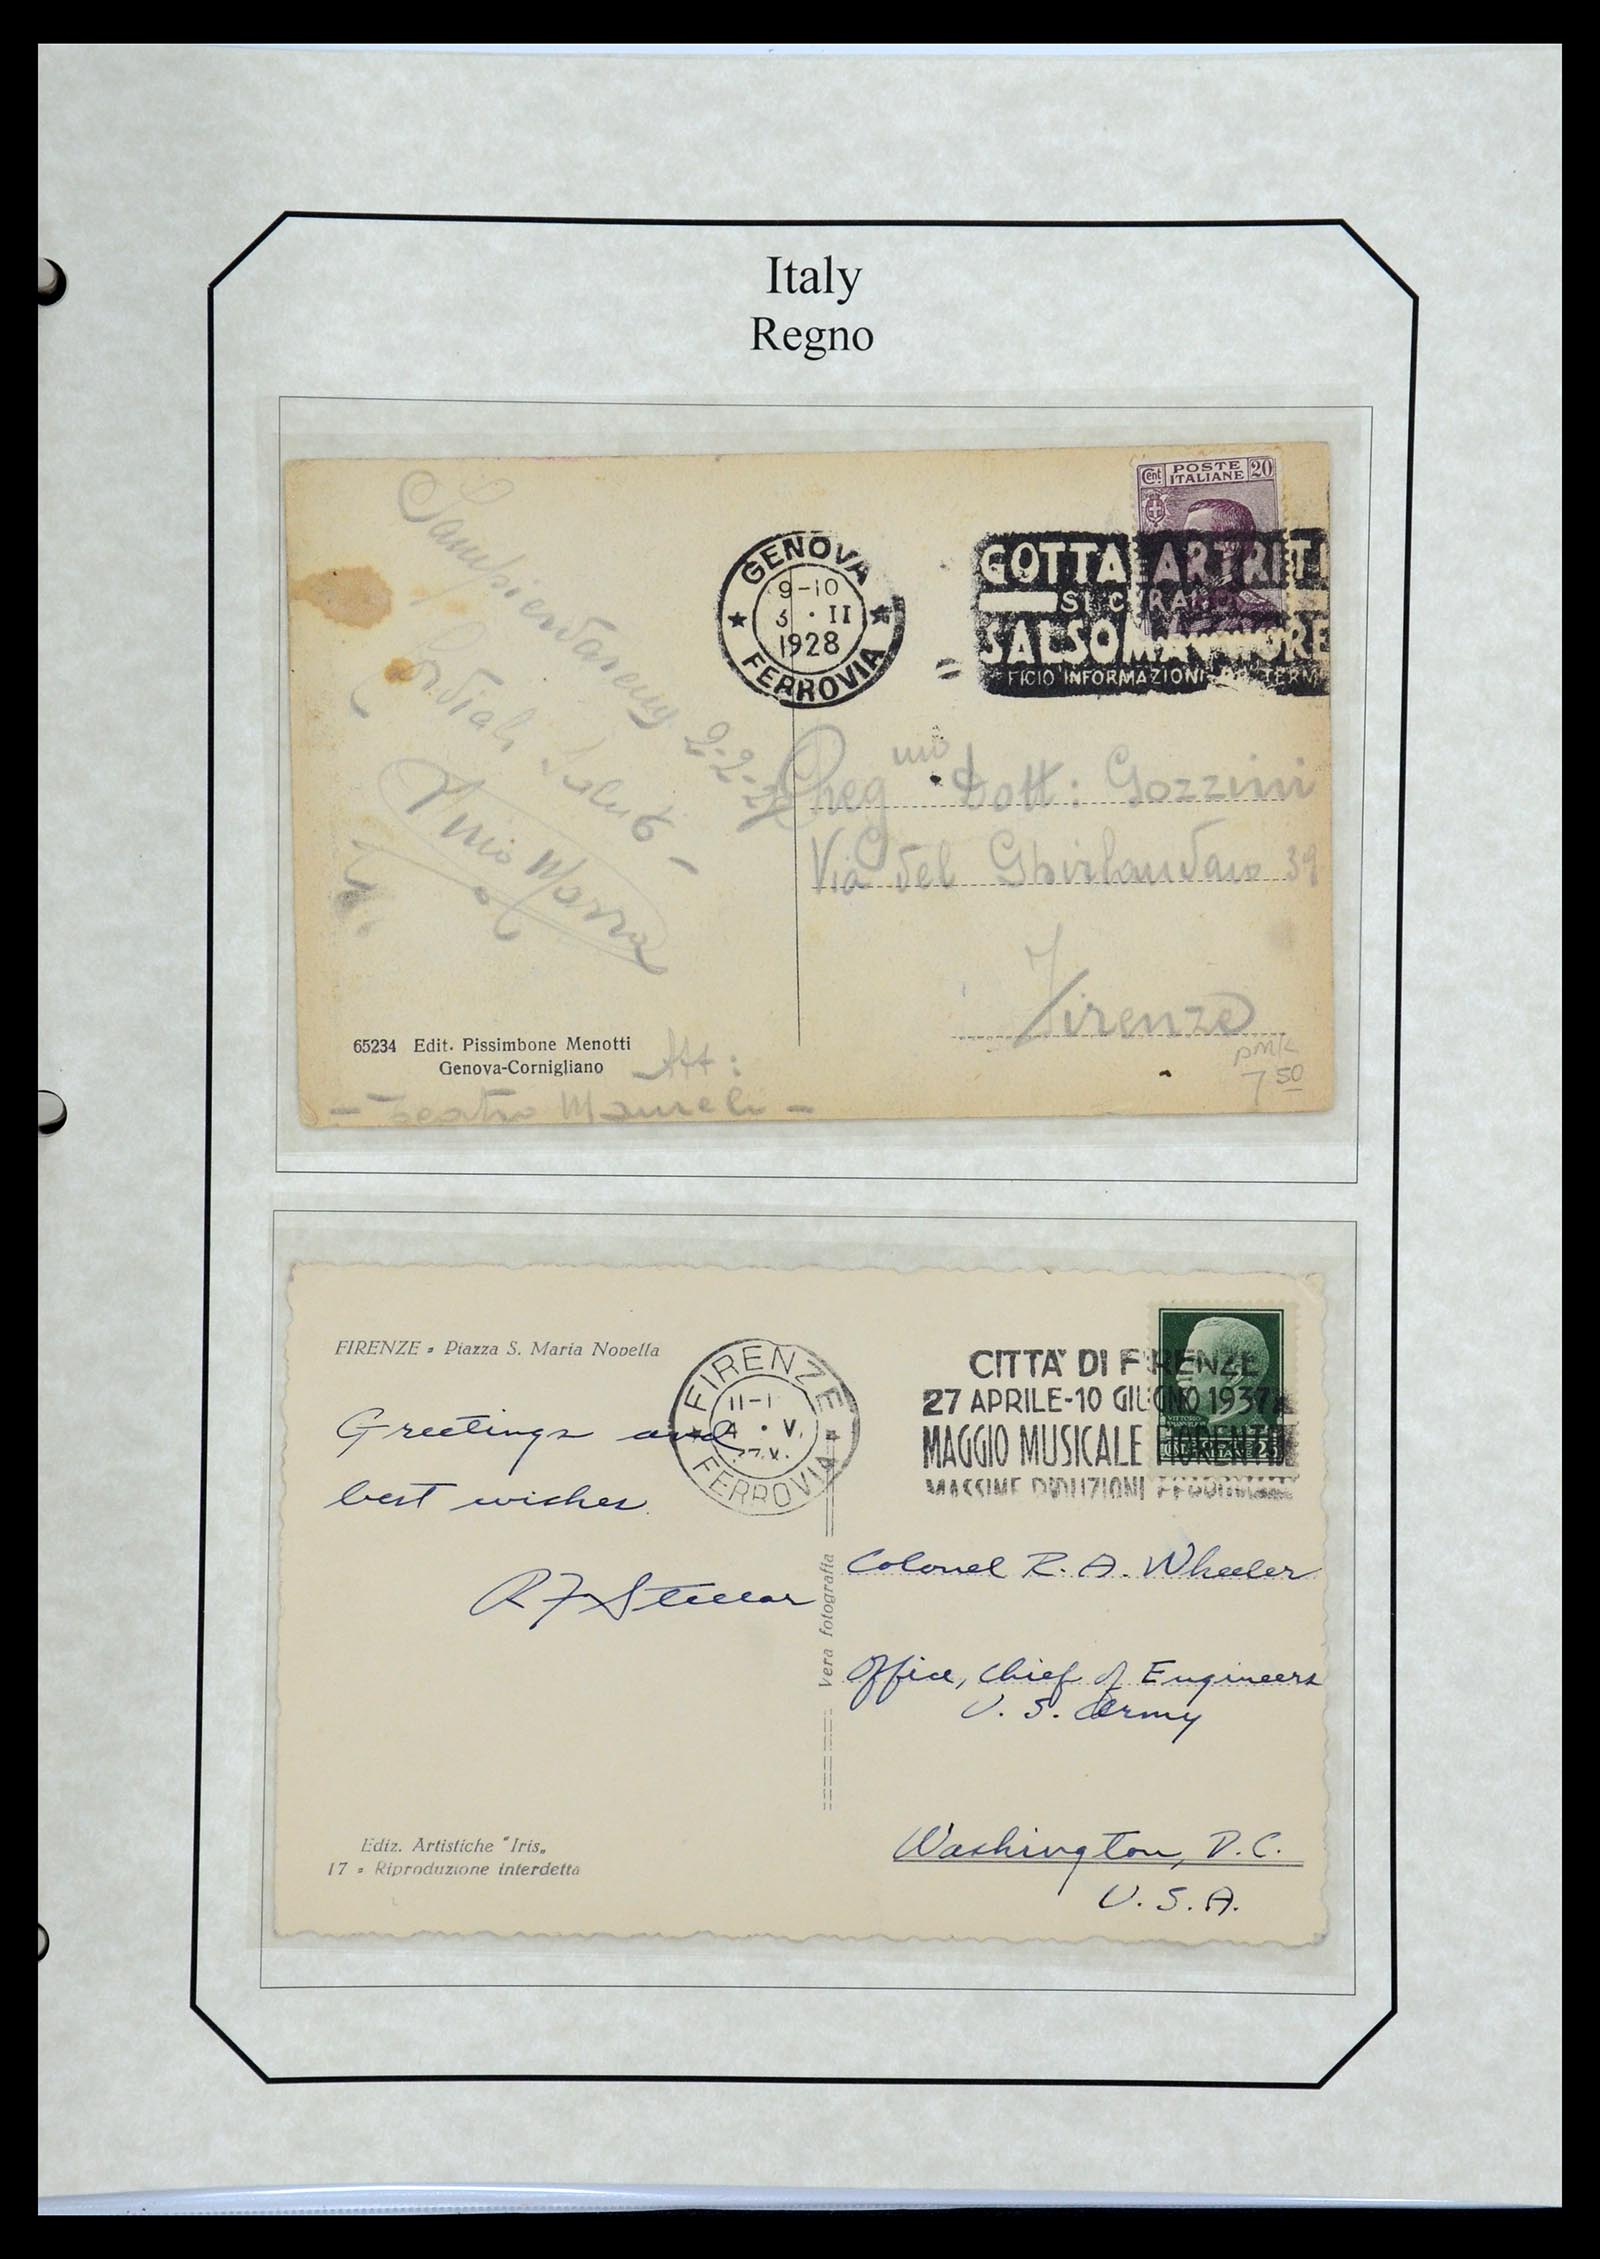 Italy
Regno
Cent. POSTE ITALIANE 20
GENOVA
9-10
3 · II
1928
FERROVIA
GOTTA ARTRITI
SI CURANO
SALSOMAGGIORE
FICIO INFORMAZIONI TERM
2-2-28
Cordiali Saluti
Egreg mo Dott: Gozzini
Via del Ghirlandaio 39
Firenze
65234 Edit. Pissimbone Menotti
Genova-Cornigliano
Att:
- Teatro Mameli -
PMK
7 50
FIRENZE - Piazza S. Maria Novella
FIRENZE
11-1
4 · V.
FERROVIA
CITTA' DI FIRENZE
27 APRILE-10 GIUGNO 1937
MAGGIO MUSICALE FIORENTINO
MASSIME RIDUZIONI FERROVIARIE
Greetings and
best wishes.
Vera fotografia
Colonel R. A. Wheeler
Office, Chief of Engineers
U. S. Army
Washington, D.C.
U. S. A.
Ediz. Artistiche "Iris„
17 - Riproduzione interdetta